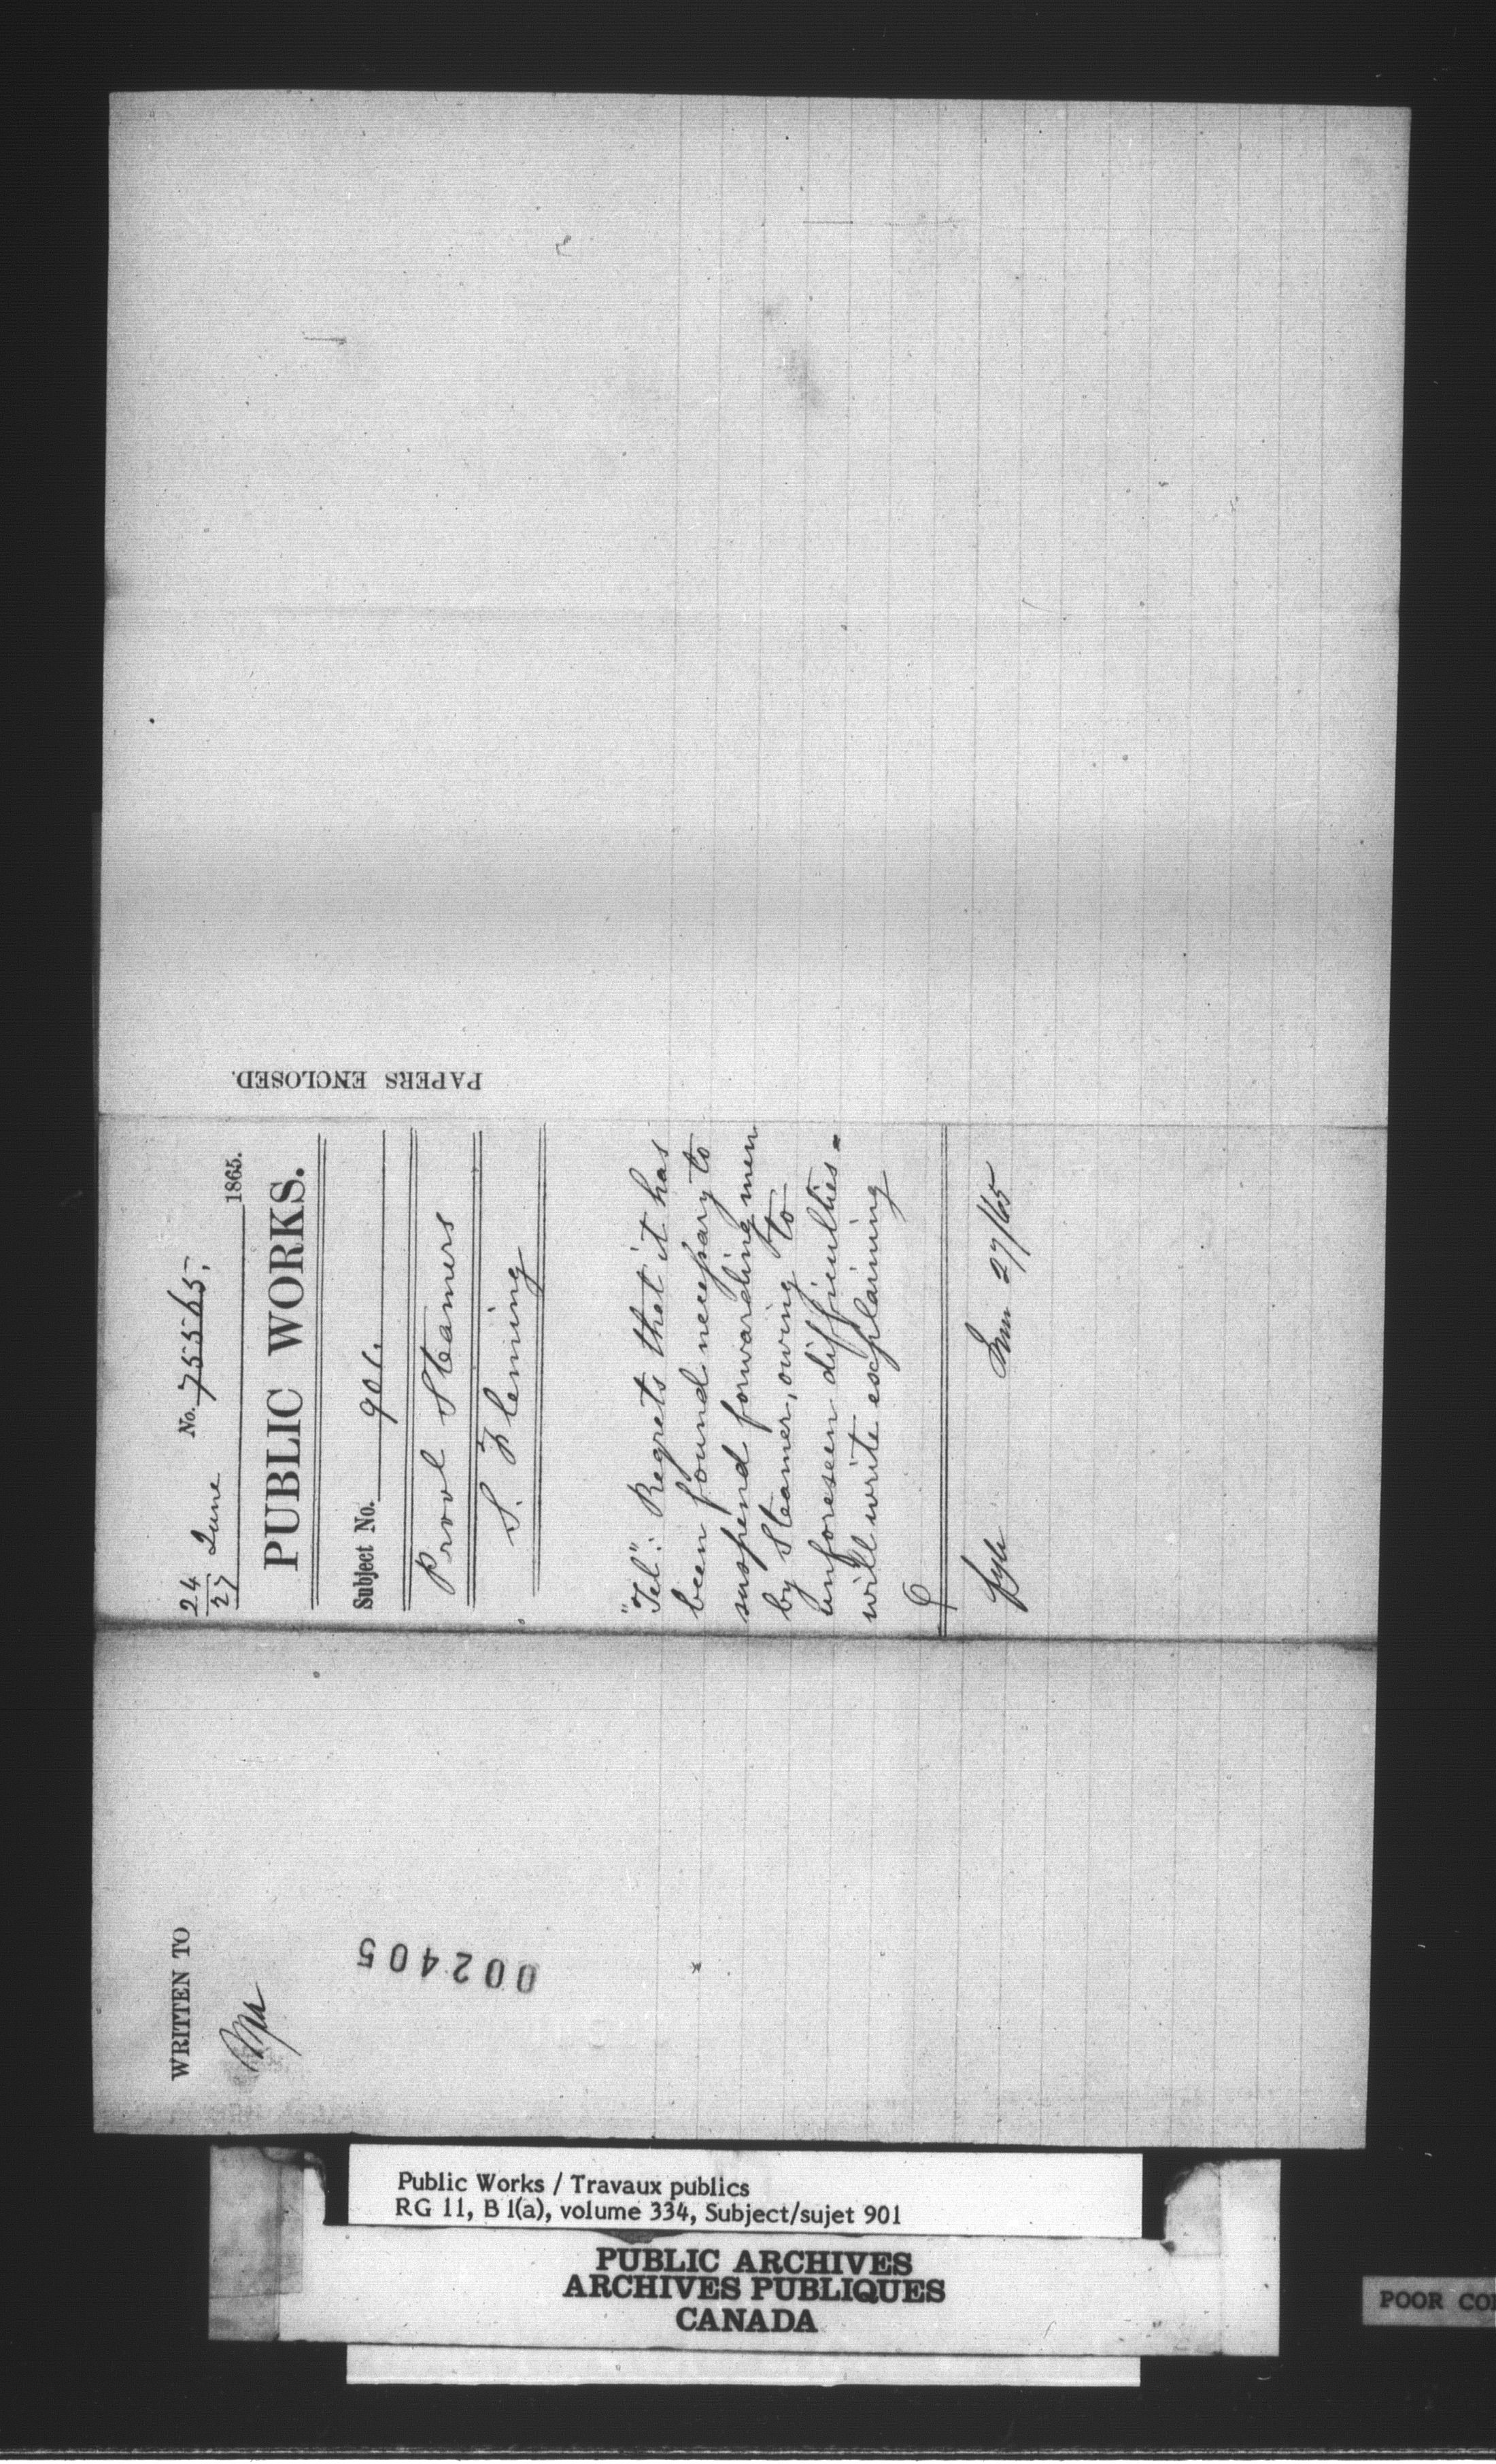 No. 75565,
24/27 June 1865.
PUBLIC WORKS.
Subject No. 901.
Provl Steamers
S. Fleming
"Tel": Regrets that it has
been found necessary to
suspend forwarding men
by Steamer, owing to
unforeseen difficulties -
will write explaining
fyle
27/65
PAPERS ENCLOSED.
WRITTEN TO
002405
Public Works / Travaux publics
RG 11, B 1(a), volume 334, Subject/sujet 901
PUBLIC ARCHIVES
ARCHIVES PUBLIQUES
CANADA
POOR